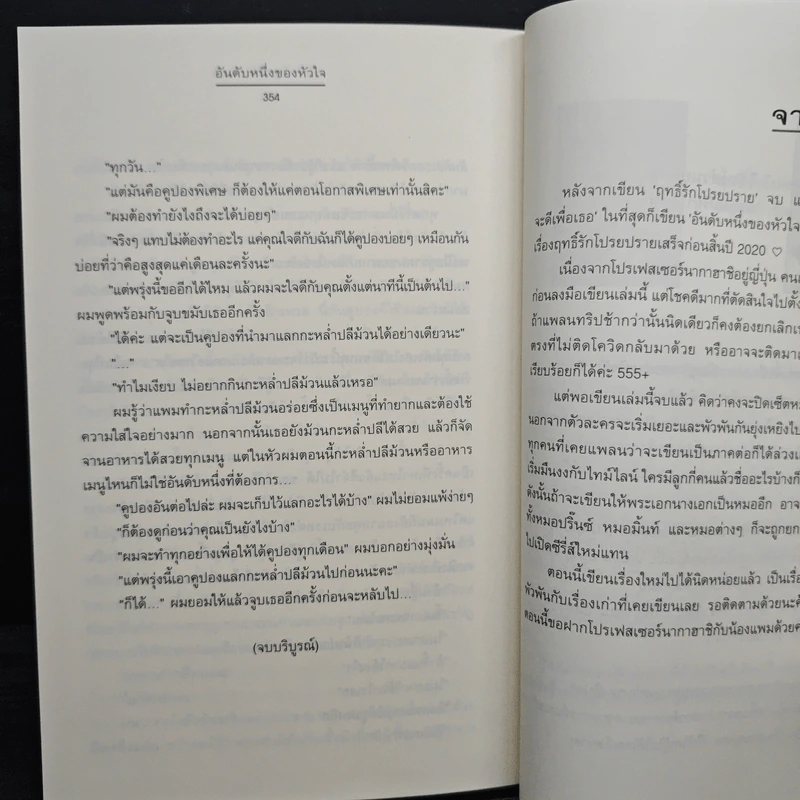 อันดับหนึ่งของหัวใจ
354
"ทุกวัน..."
"แต่มันคือคูปองพิเศษ ก็ต้องให้แค่ตอนโอกาสพิเศษเท่านั้นสิคะ"
"ผมต้องทำยังไงถึงจะได้บ่อยๆ"
"จริงๆ แทบไม่ต้องทำอะไร แค่คุณใจดีกับฉันก็ได้คูปองบ่อยๆ เหมือนกัน
บ่อยที่ว่าคือสูงสุดแค่เดือนละครั้งนะ"
"แต่พรุ่งนี้ขออีกได้ไหม แล้วผมจะใจดีกับคุณตั้งแต่นาทีนี้เป็นต้นไป..."
ผมพูดพร้อมกับจูบขมับเธออีกครั้ง
"ได้ค่ะ แต่จะเป็นคูปองที่นำมาแลกกะหล่ำปลีม้วนได้อย่างเดียวนะ"
"..."
"ทำไมเงียบ ไม่อยากกินกะหล่ำปลีม้วนแล้วเหรอ"
ผมรู้ว่าแพมทำกะหล่ำปลีม้วนอร่อยซึ่งเป็นเมนูที่ทำยากและต้องใช้
ความใส่ใจอย่างมาก นอกจากนั้นเธอยังม้วนกะหล่ำปลีได้สวย แล้วก็จัด
จานอาหารได้สวยทุกเมนู แต่ในหัวผมตอนนี้กะหล่ำปลีม้วนหรืออาหาร
เมนูไหนก็ไม่ใช่อันดับหนึ่งที่ต้องการ...
"คูปองอันต่อไปล่ะ ผมจะเก็บไว้แลกอะไรได้บ้าง" ผมไม่ยอมแพ้ง่ายๆ
"ก็ต้องดูก่อนว่าคุณเป็นยังไงบ้าง"
"ผมจะทำทุกอย่างเพื่อให้ได้คูปองทุกเดือน" ผมบอกอย่างมุ่งมั่น
"แต่พรุ่งนี้เอาคูปองแลกกะหล่ำปลีม้วนไปก่อนนะคะ"
"ก็ได้..." ผมยอมให้แล้วจูบเธออีกครั้งก่อนจะหลับไป...
(จบบริบูรณ์)
จา
หลังจากเขียน 'ฤทธิ์รักโปรยปราย' จบ แ
จะดีเพื่อเธอ' ในที่สุดก็เขียน 'อันดับหนึ่งของหัวใจ
เรื่องฤทธิ์รักโปรยปรายเสร็จก่อนสิ้นปี 2020 ♡
เนื่องจากโปรเฟสเซอร์นากาฮาชิอยู่ญี่ปุ่น คนเ
ก่อนลงมือเขียนเล่มนี้ แต่โชคดีมากที่ตัดสินใจไปตั้ง
ถ้าแพลนทริปช้ากว่านั้นนิดเดียวก็คงต้องยกเลิกเ
ตรงที่ไม่ติดโควิดกลับมาด้วย หรืออาจจะติดมา
เรียบร้อยก็ได้ค่ะ 555+
แต่พอเขียนเล่มนี้จบแล้ว คิดว่าคงจะปิดเซ็ตหม
นอกจากตัวละครจะเริ่มเยอะและพัวพันกันยุ่งเหยิงไป
ทุกคนที่เคยแพลนว่าจะเขียนเป็นภาคต่อก็ได้ล่วงเ
เริ่มมึนงงกับไทม์ไลน์ ใครมีลูกกี่คนแล้วชื่ออะไรบ้างก็
ดังนั้นถ้าจะเขียนให้พระเอกนางเอกเป็นหมออีก อาจ
ทั้งหมอปริ๊นซ์ หมอมิ้นท์ และหมอต่างๆ ก็จะถูกยก
ไปเปิดซีรี่ส์ใหม่แทน
ตอนนี้เขียนเรื่องใหม่ไปได้นิดหน่อยแล้ว เป็นเรื่อ
พัวพันกับเรื่องเก่าที่เคยเขียนเลย รอติดตามด้วยนะค
ตอนนี้ขอฝากโปรเฟสเซอร์นากาฮาชิกับน้องแพมด้วยค